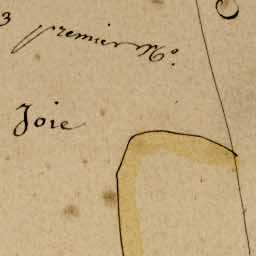 3
premier N.º
Joie